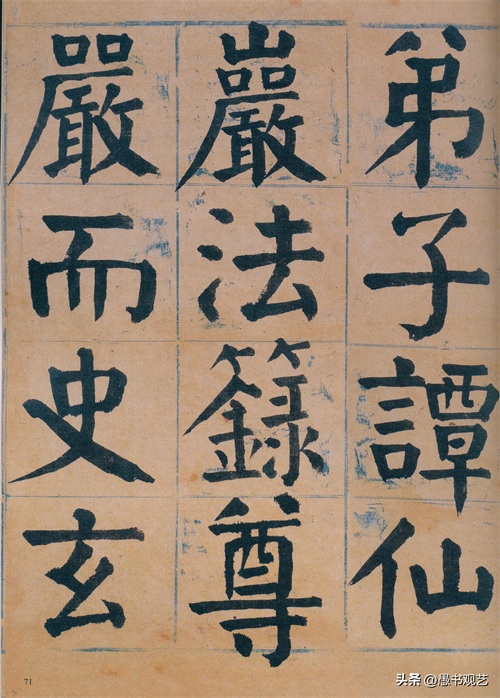 弟子譚仙
巖法籙尊
嚴而史玄
71
头条@愚书观艺